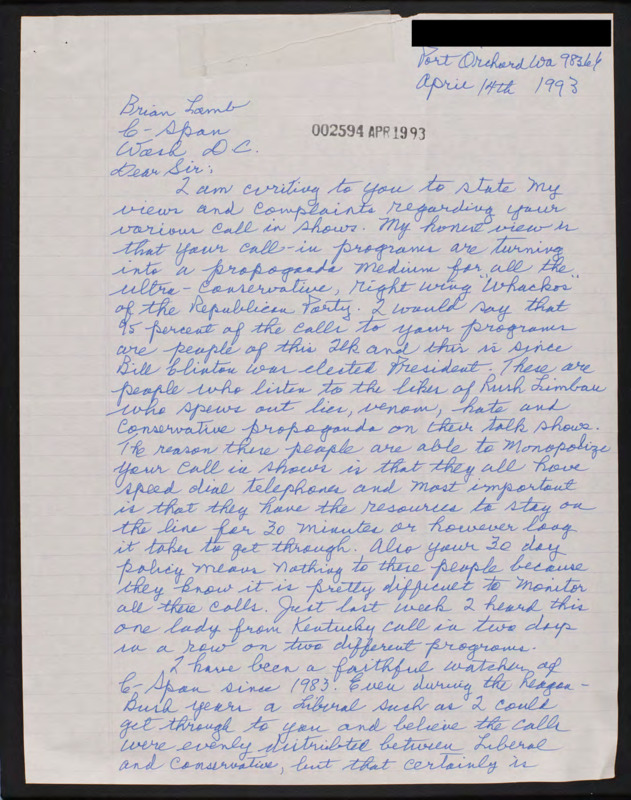 Port Orchard Wa 98366
April 14th 1993
Brian Lamb
C-Span
Wash D C.
002594 APR 1993
Dear Sir:
I am writing to you to state my
views and complaints regarding your
various call in shows. My honest view is
that your call-in programs are turning
into a propoganda medium for all the
ultra-conservative, right wing "Whackos"
of the Republican Party. I would say that
95 percent of the calls to your programs
are people of this Ilk and this is since
Bill Clinton was elected President. These are
people who listen to the likes of Rush Limbau
who spews out lies, venom, hate and
conservative propoganda on their talk shows.
The reason these people are able to Monopolize
your call in shows is that they all have
speed dial telephones and most important
is that they have the resources to stay on
the line for 30 minutes or however long
it takes to get through. Also your 30 day
policy means nothing to these people because
they know it is pretty difficult to monitor
all these calls. Just last week I heard this
one lady from Kentucky call in two days
in a row on two different programs.
I have been a faithful watcher of
C-Span since 1983. Even during the Reagan-
Bush years a Liberal such as I could
get through to you and believe the calls
were evenly distributed between Liberal
and Conservative, but that certainly is